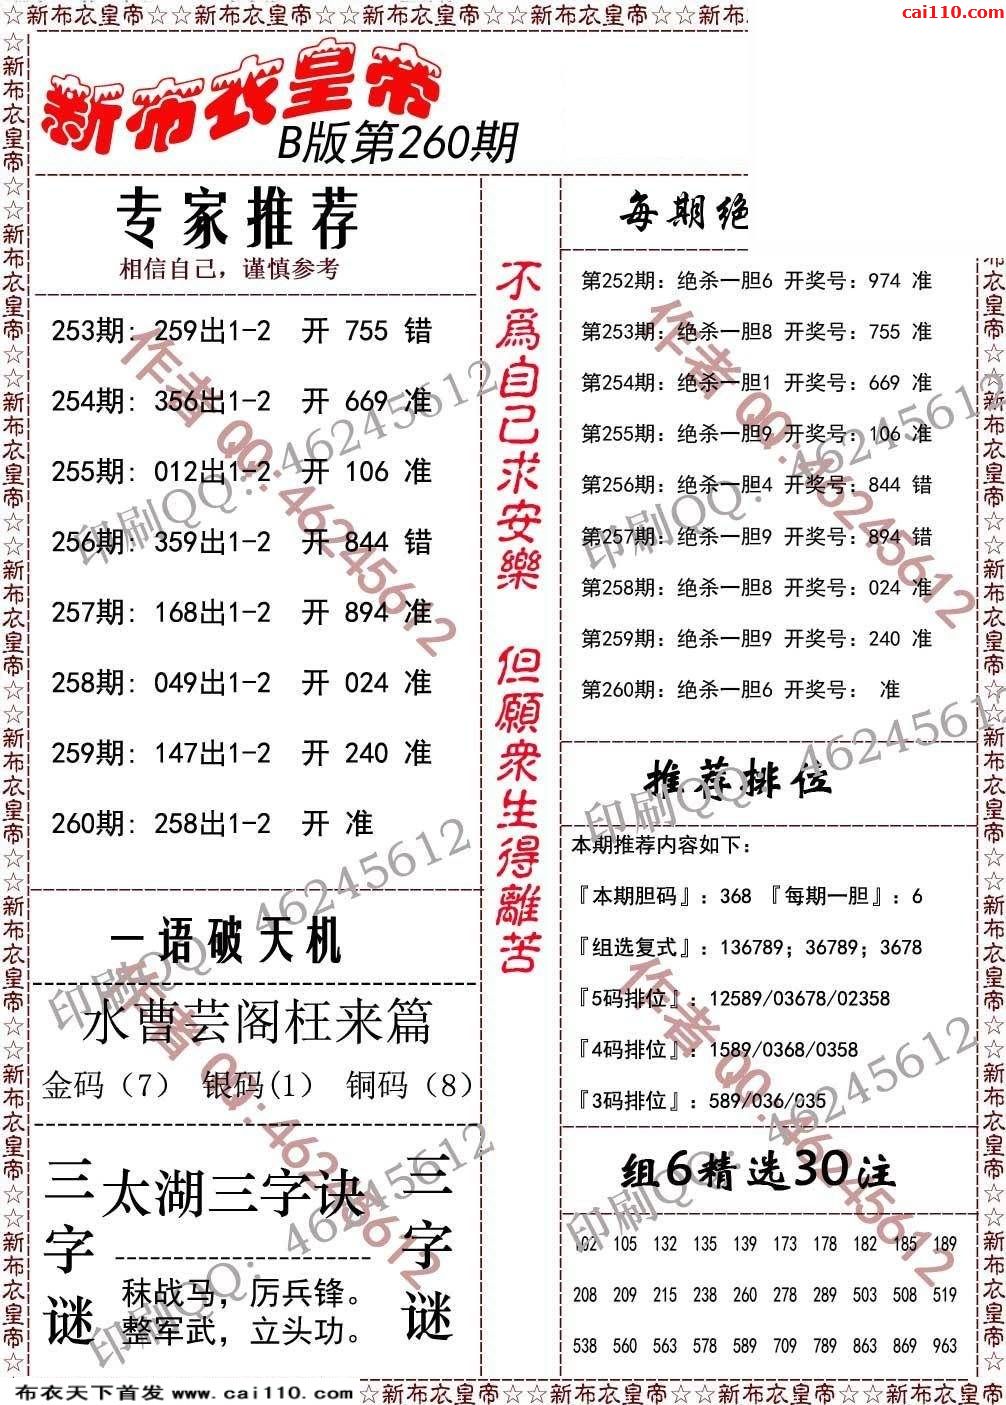 ☆新布衣皇帝☆☆新布衣皇帝☆☆新布衣皇帝☆☆新布衣皇帝☆☆新布
cai110.com
新布衣皇帝
B版第260期
专家推荐
相信自己，谨慎参考
253期: 259出1-2 开 755 错
254期: 356出1-2 开 669 准
255期: 012出1-2 开 106 准
256期: 359出1-2 开 844 错
257期: 168出1-2 开 894 准
258期: 049出1-2 开 024 准
259期: 147出1-2 开 240 准
260期: 258出1-2 开 准
一语破天机
水曹芸阁枉来篇
金码（7） 银码(1） 铜码（8）
三字谜
太湖三字诀
秣战马，厉兵锋。
整军武，立头功。
三字谜
不爲自己求安樂 但願衆生得離苦
每期绝
第252期: 绝杀一胆6 开奖号: 974 准
第253期: 绝杀一胆8 开奖号: 755 准
第254期: 绝杀一胆1 开奖号: 669 准
第255期: 绝杀一胆9 开奖号: 106 准
第256期: 绝杀一胆4 开奖号: 844 错
第257期: 绝杀一胆9 开奖号: 894 错
第258期: 绝杀一胆8 开奖号: 024 准
第259期: 绝杀一胆9 开奖号: 240 准
第260期: 绝杀一胆6 开奖号: 准
推荐排位
本期推荐内容如下:
『本期胆码』: 368 『每期一胆』: 6
『组选复式』: 136789; 36789; 3678
『5码排位』: 12589/03678/02358
『4码排位』: 1589/0368/0358
『3码排位』: 589/036/035
组6精选30注
102 105 132 135 139 173 178 182 185 189
208 209 215 238 260 278 289 503 508 519
538 560 563 578 589 709 789 863 869 963
作者 QQ:46245612
印刷QQ: 46245612
作者 QQ:46245612
印刷QQ: 46245612
印刷QQ: 46245612
印刷QQ: 46245612
作者 QQ:46245612
印刷QQ: 46245612
作者 QQ:46245612
印刷QQ: 46245612
布衣天下首发 www.cai110.com
☆新布衣皇帝☆☆新布衣皇帝☆☆新布衣皇帝☆☆新布衣皇帝☆